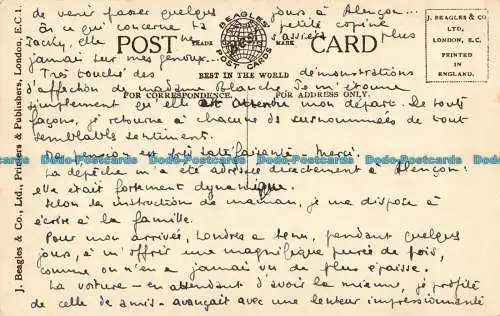 de venir passer quelques jours à Alençon...
En ce qui concerne ta petite copine
Jacky, elle ne s'assiera plus
jamais sur mes genoux.
Très touché des démonstrations
d'affection de madame Blanche. Je m'étonne
simplement qu'elle ait attendu mon départ. De toute
façons, je retourne à chacune de susnommées de tout
semblables sentiments.
Ma pension est très satisfaisante. Merci.
La dépêche m'a été adressée directement à Alençon:
elle était fortement dynamique.
Selon les instruction de maman, je me dispose à
écrire à la famille.
Pour mon arrivée, Londres a tenu, pendant quelques
jours, à m'offrir une magnifique purée de pois,
comme on n'en a jamais vu de plus épaisse.
La voiture - en attendant d'avoir la mienne, je profite
de celle de amis - avançait avec une lenteur impressionnante
POST CARD
TRADE MARK
BEAGLES
POST CARDS
BEST IN THE WORLD
FOR CORRESPONDENCE
FOR ADDRESS ONLY.
J. BEAGLES & CO
LTD,
LONDON, E.C.
PRINTED
IN
ENGLAND.
J. Beagles & Co., Ltd., Printers & Publishers, London, E.C.1.
Dodo-Postcards.com
Dodo-Postcards.com
Dodo-Postcards.com
Dodo-Postcards.com